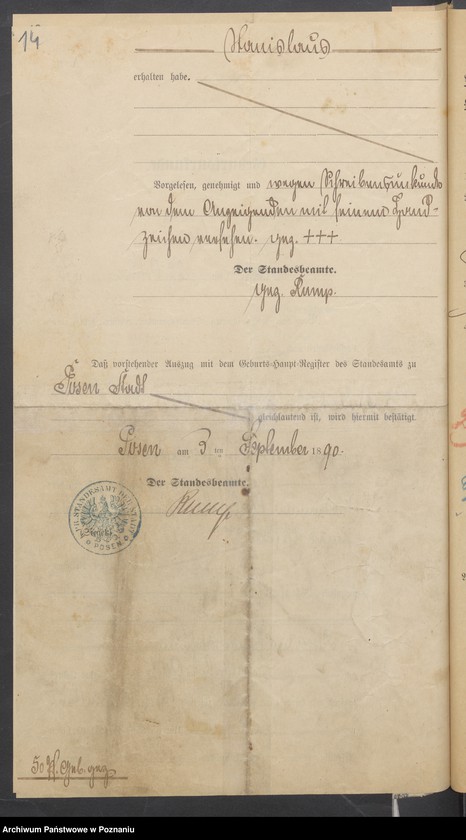 14
Stanislaus
erhalten habe.
Vorgelesen, genehmigt und wegen Schreibensunkunde
von dem Anzeigenden mit seinem Hand-
zeichen versehen. gez. +++
Der Standesbeamte.
gez. Rump.
Daß vorstehender Auszug mit dem Geburts-Haupt-Register des Standesamts zu
Posen Stadt
gleichlautend ist, wird hiermit bestätigt.
Posen am 3 ten September 1890.
Der Standesbeamte.
Rump
POSEN
50 Pf. Geb. gez.
Archiwum Państwowe w Poznaniu